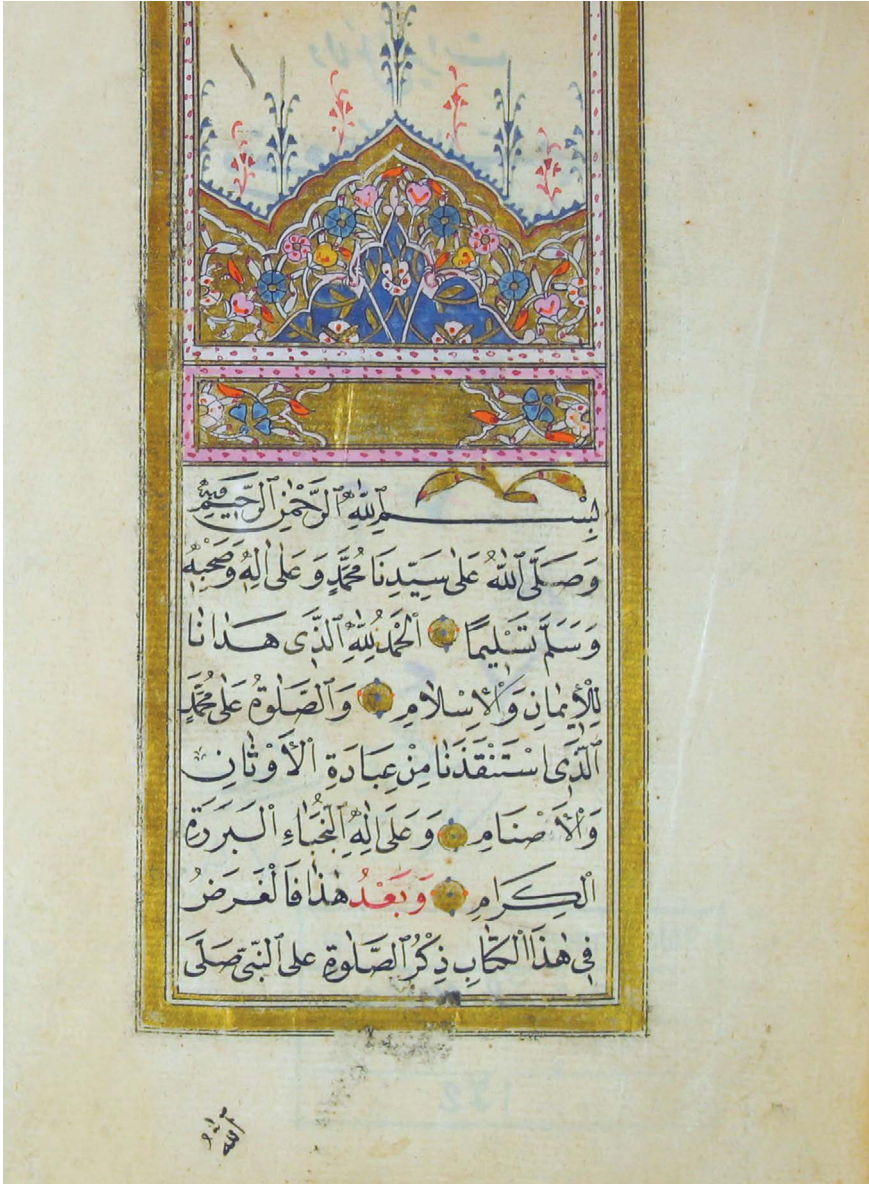 بِسْمِ ٱللّٰهِ ٱلرَّحْمٰنِ ٱلرَّحِيمِ وَبِهِ
وَصَلَّى ٱللّٰهُ عَلٰى سَيِّدِنَا مُحَمَّدٍ وَعَلٰى اٰلِهٖ وَصَحْبِهٖ
وَسَلَّمَ تَسْلِيمًا اَلْحَمْدُ لِلّٰهِ ٱلَّذِى هَدٰانَا
لِلْاِيمٰانِ وَالْاِسْلَامِ وَٱلصَّلٰوةُ عَلٰى مُحَمَّدٍ
ٱلَّذِى اسْتَنْقَذَنَا مِنْ عِبَادَةِ الْاَوْثٰانِ
وَالْاَصْنَامِ وَعَلٰى اٰلِهِ ٱلنُّجَبَاءِ الْبَرَرَةِ
الْكِرَامِ وَبَعْدُ هٰذَا فَالْغَرَضُ
فِى هٰذَا الْكِتَابِ ذِكْرُ ٱلصَّلٰوةِ عَلَى ٱلنَّبِىِّ صَلَّى
الله